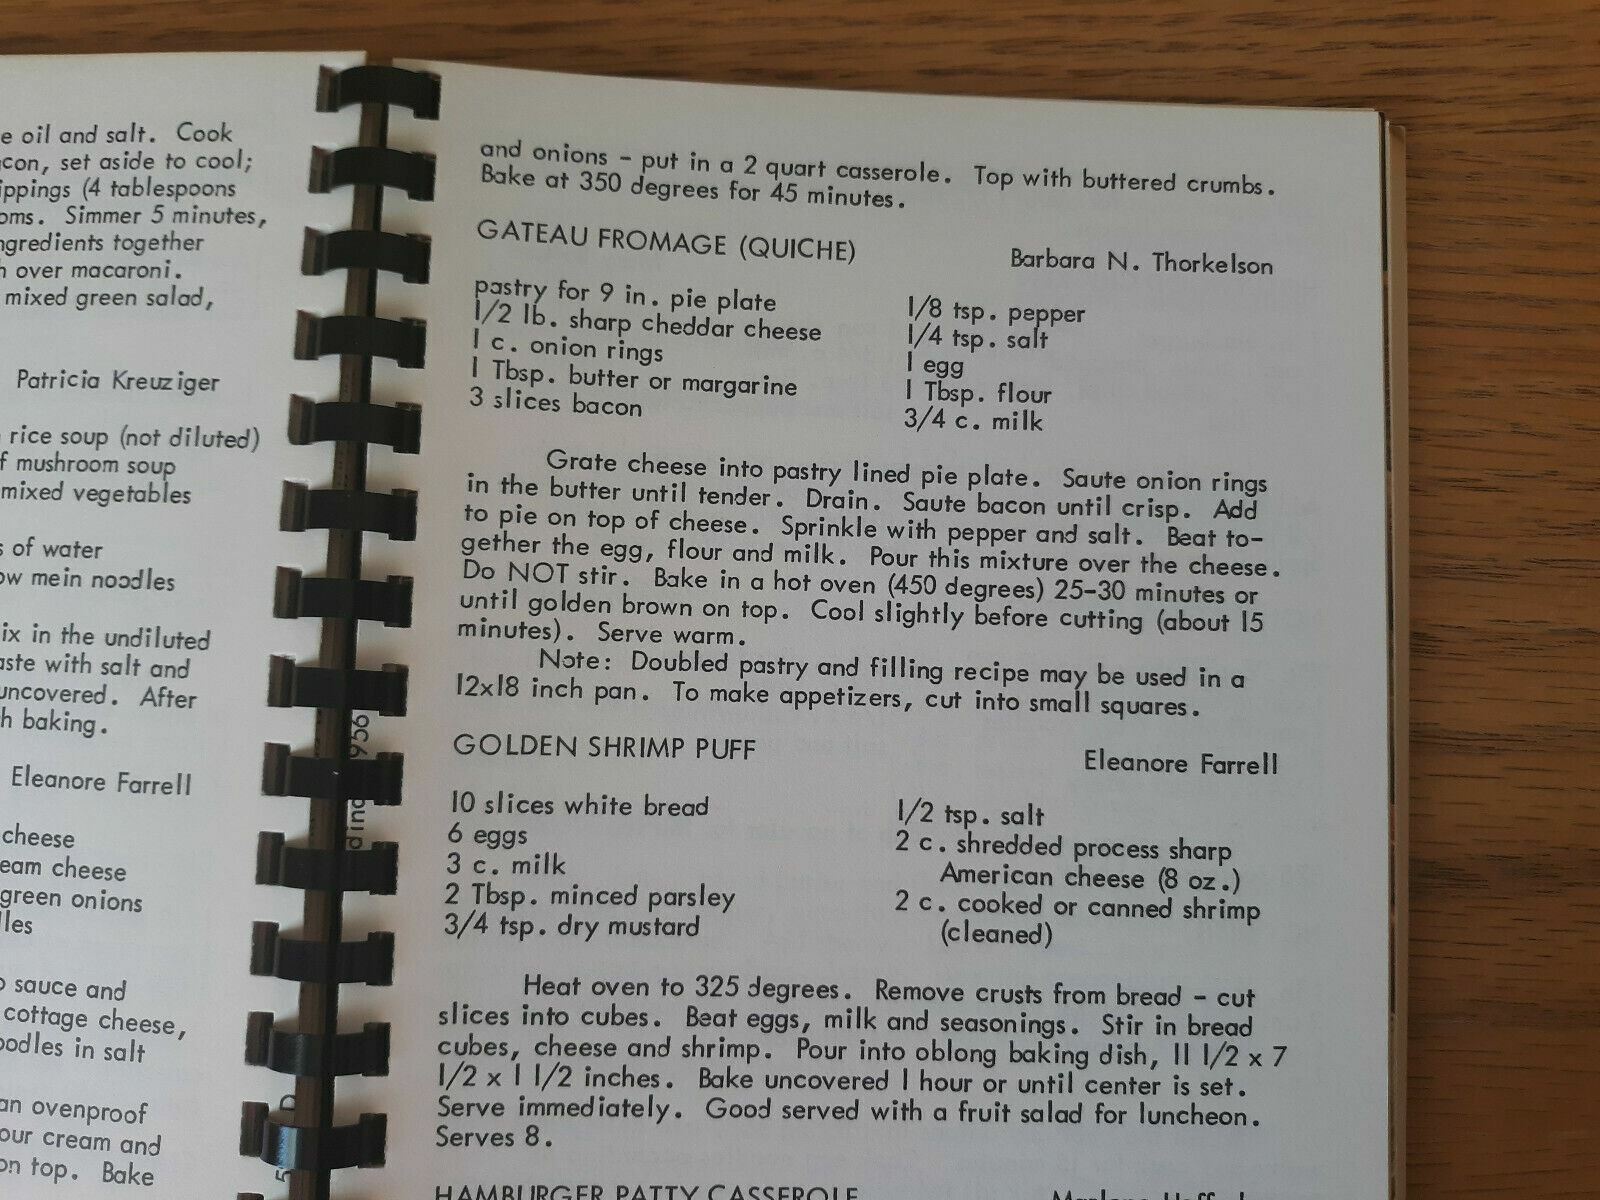 e oil and salt. Cook
con, set aside to cool;
ippings (4 tablespoons
oms. Simmer 5 minutes,
ngredients together
h over macaroni.
mixed green salad,
Patricia Kreuziger
rice soup (not diluted)
f mushroom soup
mixed vegetables
s of water
ow mein noodles
ix in the undiluted
aste with salt and
uncovered. After
h baking.
Eleanore Farrell
cheese
eam cheese
green onions
lles
o sauce and
cottage cheese,
oodles in salt
an ovenproof
our cream and
on top. Bake
and onions - put in a 2 quart casserole. Top with buttered crumbs.
Bake at 350 degrees for 45 minutes.
GATEAU FROMAGE (QUICHE) Barbara N. Thorkelson
pastry for 9 in. pie plate
1/2 lb. sharp cheddar cheese
1 c. onion rings
1 Tbsp. butter or margarine
3 slices bacon
1/8 tsp. pepper
1/4 tsp. salt
1 egg
1 Tbsp. flour
3/4 c. milk
Grate cheese into pastry lined pie plate. Saute onion rings
in the butter until tender. Drain. Saute bacon until crisp. Add
to pie on top of cheese. Sprinkle with pepper and salt. Beat to-
gether the egg, flour and milk. Pour this mixture over the cheese.
Do NOT stir. Bake in a hot oven (450 degrees) 25-30 minutes or
until golden brown on top. Cool slightly before cutting (about 15
minutes). Serve warm.
Note: Doubled pastry and filling recipe may be used in a
12x18 inch pan. To make appetizers, cut into small squares.
GOLDEN SHRIMP PUFF Eleanore Farrell
10 slices white bread
6 eggs
3 c. milk
2 Tbsp. minced parsley
3/4 tsp. dry mustard
1/2 tsp. salt
2 c. shredded process sharp
American cheese (8 oz.)
2 c. cooked or canned shrimp
(cleaned)
Heat oven to 325 degrees. Remove crusts from bread - cut
slices into cubes. Beat eggs, milk and seasonings. Stir in bread
cubes, cheese and shrimp. Pour into oblong baking dish, 11 1/2 x 7
1/2 x 1 1/2 inches. Bake uncovered 1 hour or until center is set.
Serve immediately. Good served with a fruit salad for luncheon.
Serves 8.
HAMBURGER PATTY CASSEROLE